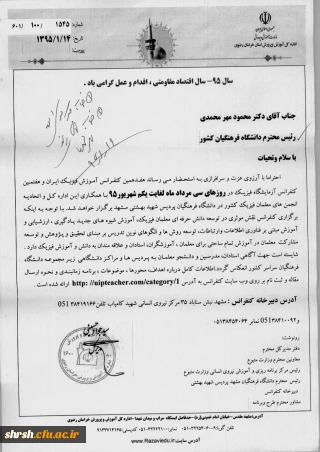 شماره: ۱۵۴۵ / ۱۰۰ / ۶۰۱
تاریخ: ۱۳۹۵/۱/۱۴
پیوست:
اداره کل آموزش و پرورش استان خراسان رضوی
سال ۹۵- سال اقتصاد مقاومتی ، اقدام و عمل گرامی باد .
جناب آقای دکتر محمود مهر محمدی
رئیس محترم دانشگاه فرهنگیان کشور
با سلام وتحیات
احتراما با آرزوی عزت و سرافرازی به استحضار می رساند هفدهمین کنفرانس آموزش فیزیک ایران و هفتمین
کنفرانس آزمایشگاه فیزیک در روزهای سی مرداد ماه لغایت یکم شهریور۹۵ با همکاری این اداره کل و اتحادیه
انجمن های معلمان فیزیک کشور در دانشگاه فرهنگیان پردیس شهید بهشتی مشهد برگزار خواهد شد. با توجه به اینکه
برگزاری کنفرانس نقش موثری در توسعه دانش حرفه ای معلمان فیزیک، آموزش شیوه های جدید یادگیری ، ارزشیابی و
آموزش مبتنی بر فناوری اطلاعات وارتباطات، توسعه روش ها و الگوهای نوین تدریس بر مبنای تحقیق و پژوهش و توسعه
مشارکت معلمان در آموزش تمام ساحتی برای معلمان ، آموزشگران، استادان و علاقه مندان به دانش و آموزش فیزیک دارد.
شایسته است جهت آگاهی استادان، مدرسین و دانشجو معلمان به پردیس ها و مراکز دانشگاهی زیر مجموعه دانشگاه
فرهنگیان سراسر کشور انعکاس گردد.اطلاعات کامل درباره اهداف، محورها ، موضوعات ، برنامه زمانبندی و نحوه ارسال
مقاله و ثبت نام بر روی وب سایت کنفرانس به آدرس http://uipteacher.com/category/1 ارائه شده است .
آدرس دبیرخانه کنفرانس : مشهد- نبش سناباد ۳۵ مرکز نیروی انسانی شهید کامیاب تلفن ۳۸۴۱۹۱۶۶ 051
و۳۸۴۱۰۰۹۲ 051 نمابر ۰۵۱۳۸۴۵۴۰۶۴
رونوشت:
دفتر مدیرکل محترم
معاونین محترم وزارت متبوع
رئیس محترم مرکز برنامه ریزی و آموزش نیروی انسانی وزارت متبوع
رئیس محترم دانشگاه فرهنگیان مشهد پردیس شهید بهشتی
دبیرخانه کنفرانس
مشاور محترم طرح وبرنامه
آدرس سایت: www.Razavi.medu.ir
shrsh.cfu.ac.ir